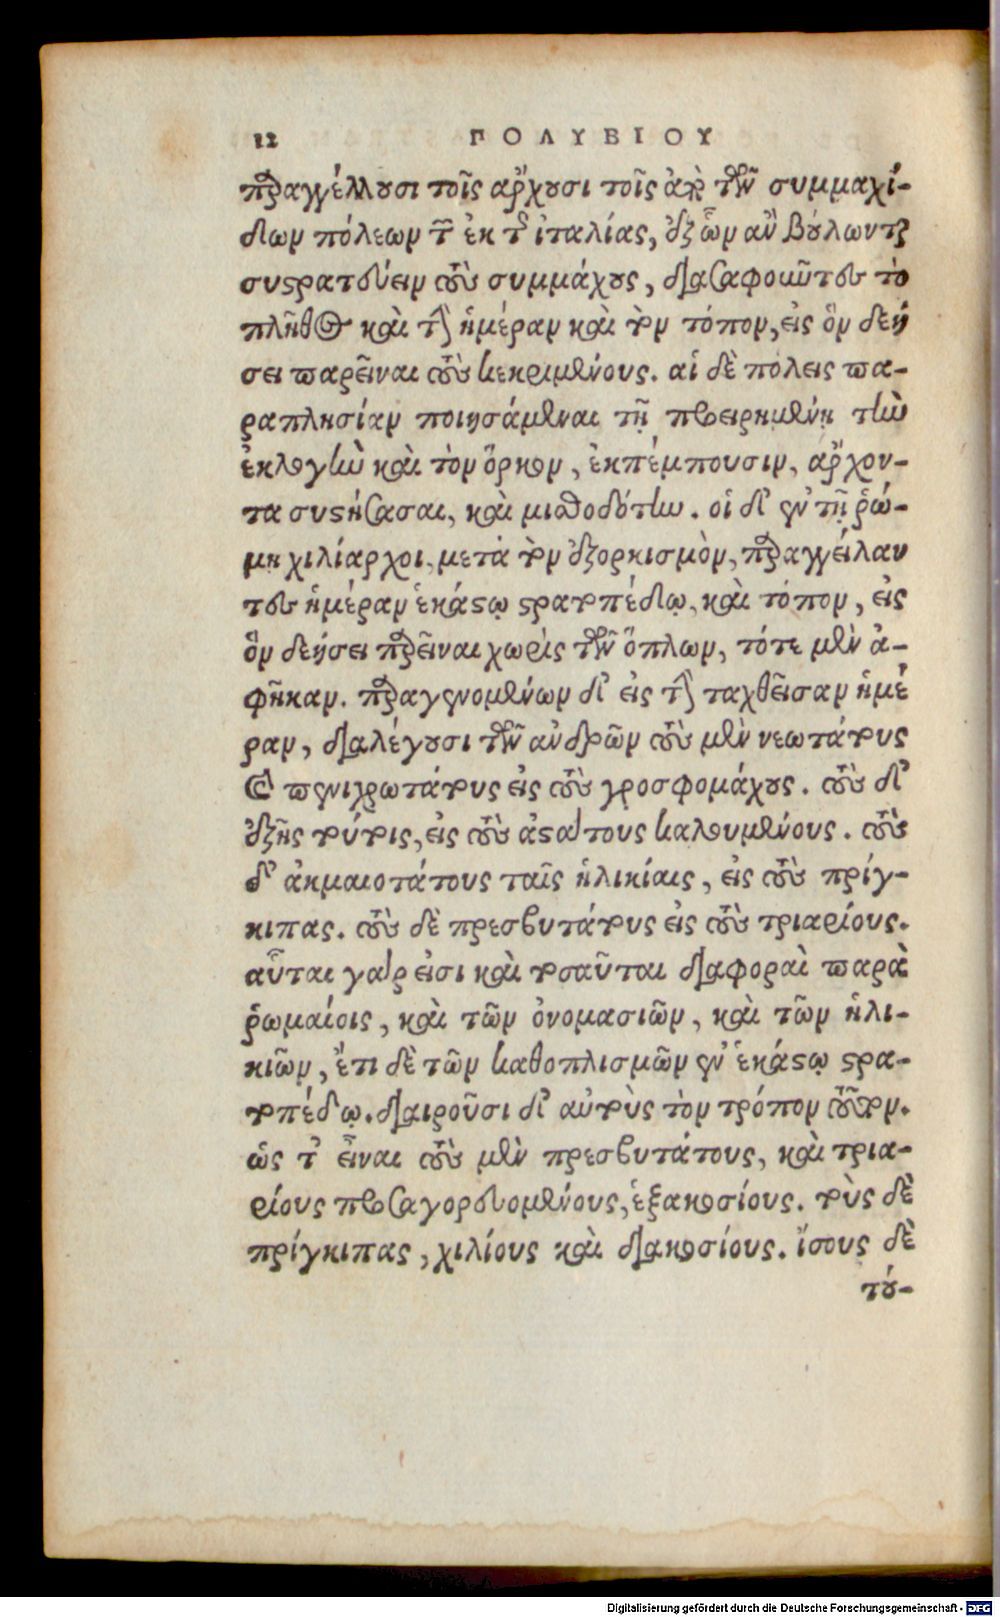 12 ΠΟΛΥΒΙΟΥ
παραγγέλλουσι τοῖς ἄρχουσι τοῖς ἀπὸ τῶν συμμαχί-
δων πόλεων τῶν ἐκ τῆς ἰταλίας, ἐξ ὧν ἂν βούλωνται
συστρατεύειν τοὺς συμμάχους, διασαφοῦντες τὸ
πλῆθος καὶ τὴν ἡμέραν καὶ τὸν τόπον, εἰς ὃν δεή
σει παρεῖναι τοὺς κεκριμένους. αἱ δὲ πόλεις πα-
ραπλησίαν ποιησάμεναι τῇ προειρημένῃ τὴν
ἐκλογὴν καὶ τὸν ὅρκον, ἐκπέμπουσιν, ἄρχον-
τα συστήσασαι, καὶ μισθοδότην. οἱ δ' ἐν τῇ ῥώ-
μῃ χιλίαρχοι, μετὰ τὸν ἐξορκισμὸν, παραγγείλαν
τες ἡμέραν ἑκάστῳ στρατοπέδῳ, καὶ τόπον, εἰς
ὃν δεήσει παρεῖναι χωρὶς τῶν ὅπλων, τότε μὲν ἀ-
φῆκαν. παραγενομένων δ' εἰς τὴν ταχθεῖσαν ἡμέ
ραν, διαλέγουσι τῶν ἀνδρῶν τοὺς μὲν νεωτάτους
καὶ πενιχρωτάτους εἰς τοὺς γροσφομάχους. τοὺς δ'
ἑξῆς τούτοις, εἰς τοὺς ἀστάτους καλουμένους. τοὺς
δ' ἀκμαιοτάτους ταῖς ἡλικίαις, εἰς τοὺς πρίγ-
κιπας. τοὺς δὲ πρεσβυτάτους εἰς τοὺς τριαρίους.
αὗται γάρ εἰσι καὶ τοσαῦται διαφοραὶ παρὰ
ῥωμαίοις, καὶ τῶν ὀνομασιῶν, καὶ τῶν ἡλι-
κιῶν, ἔτι δὲ τῶν καθοπλισμῶν ἐν ἑκάστῳ στρα-
τοπέδῳ. διαιροῦσι δ' αὐτοὺς τὸν τρόπον τοῦτον.
ὥς τ' εἶναι τοὺς μὲν πρεσβυτάτους, καὶ τρια-
ρίους προσαγορευομένους, ἑξακοσίους. τοὺς δὲ
πρίγκιπας, χιλίους καὶ διακοσίους. ἴσους δὲ
τού-
Digitalisierung gefördert durch die Deutsche Forschungsgemeinschaft - DFG